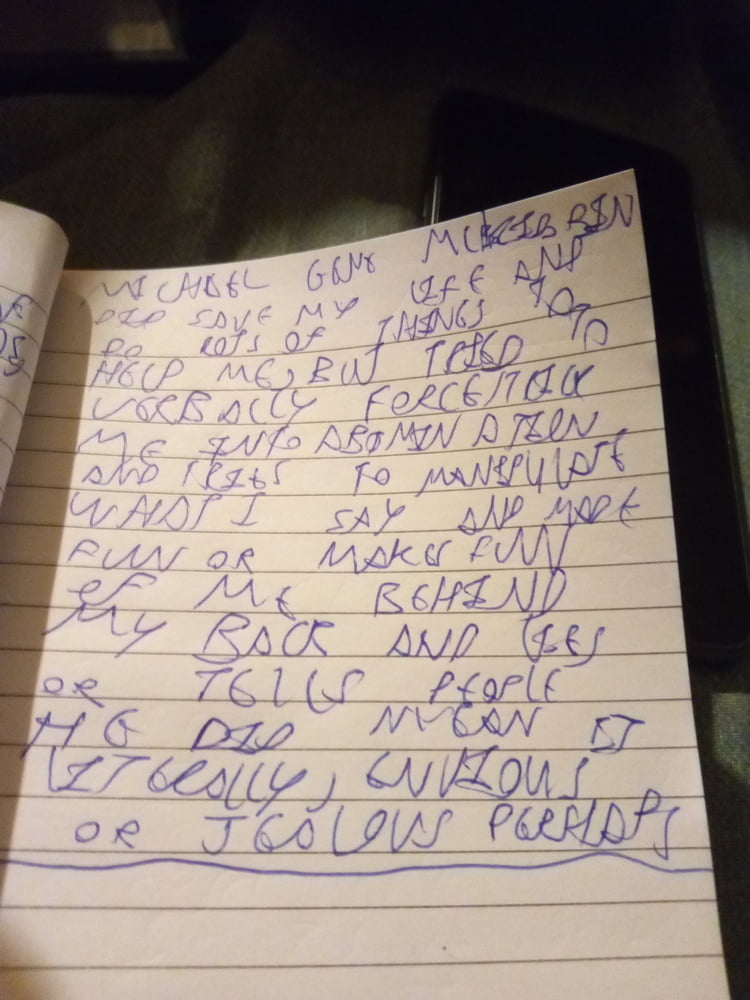 MICHAEL GENE MCKIBBIN
DID SAVE MY LIFE AND
DO LOTS OF THINGS TO
HELP ME, BUT TRIED TO
VERBALLY FORCE/TRICK
ME INTO ABOMINATION
AND TRIES TO MANIPULATE
WHAT I SAY AND MADE
FUN OR MAKES FUN
OF ME BEHIND
MY BACK AND LIES
OR TELLS PEOPLE
HE DID MEAN IT
LITERALLY, ENVIOUS
OR JEALOUS PERHAPS